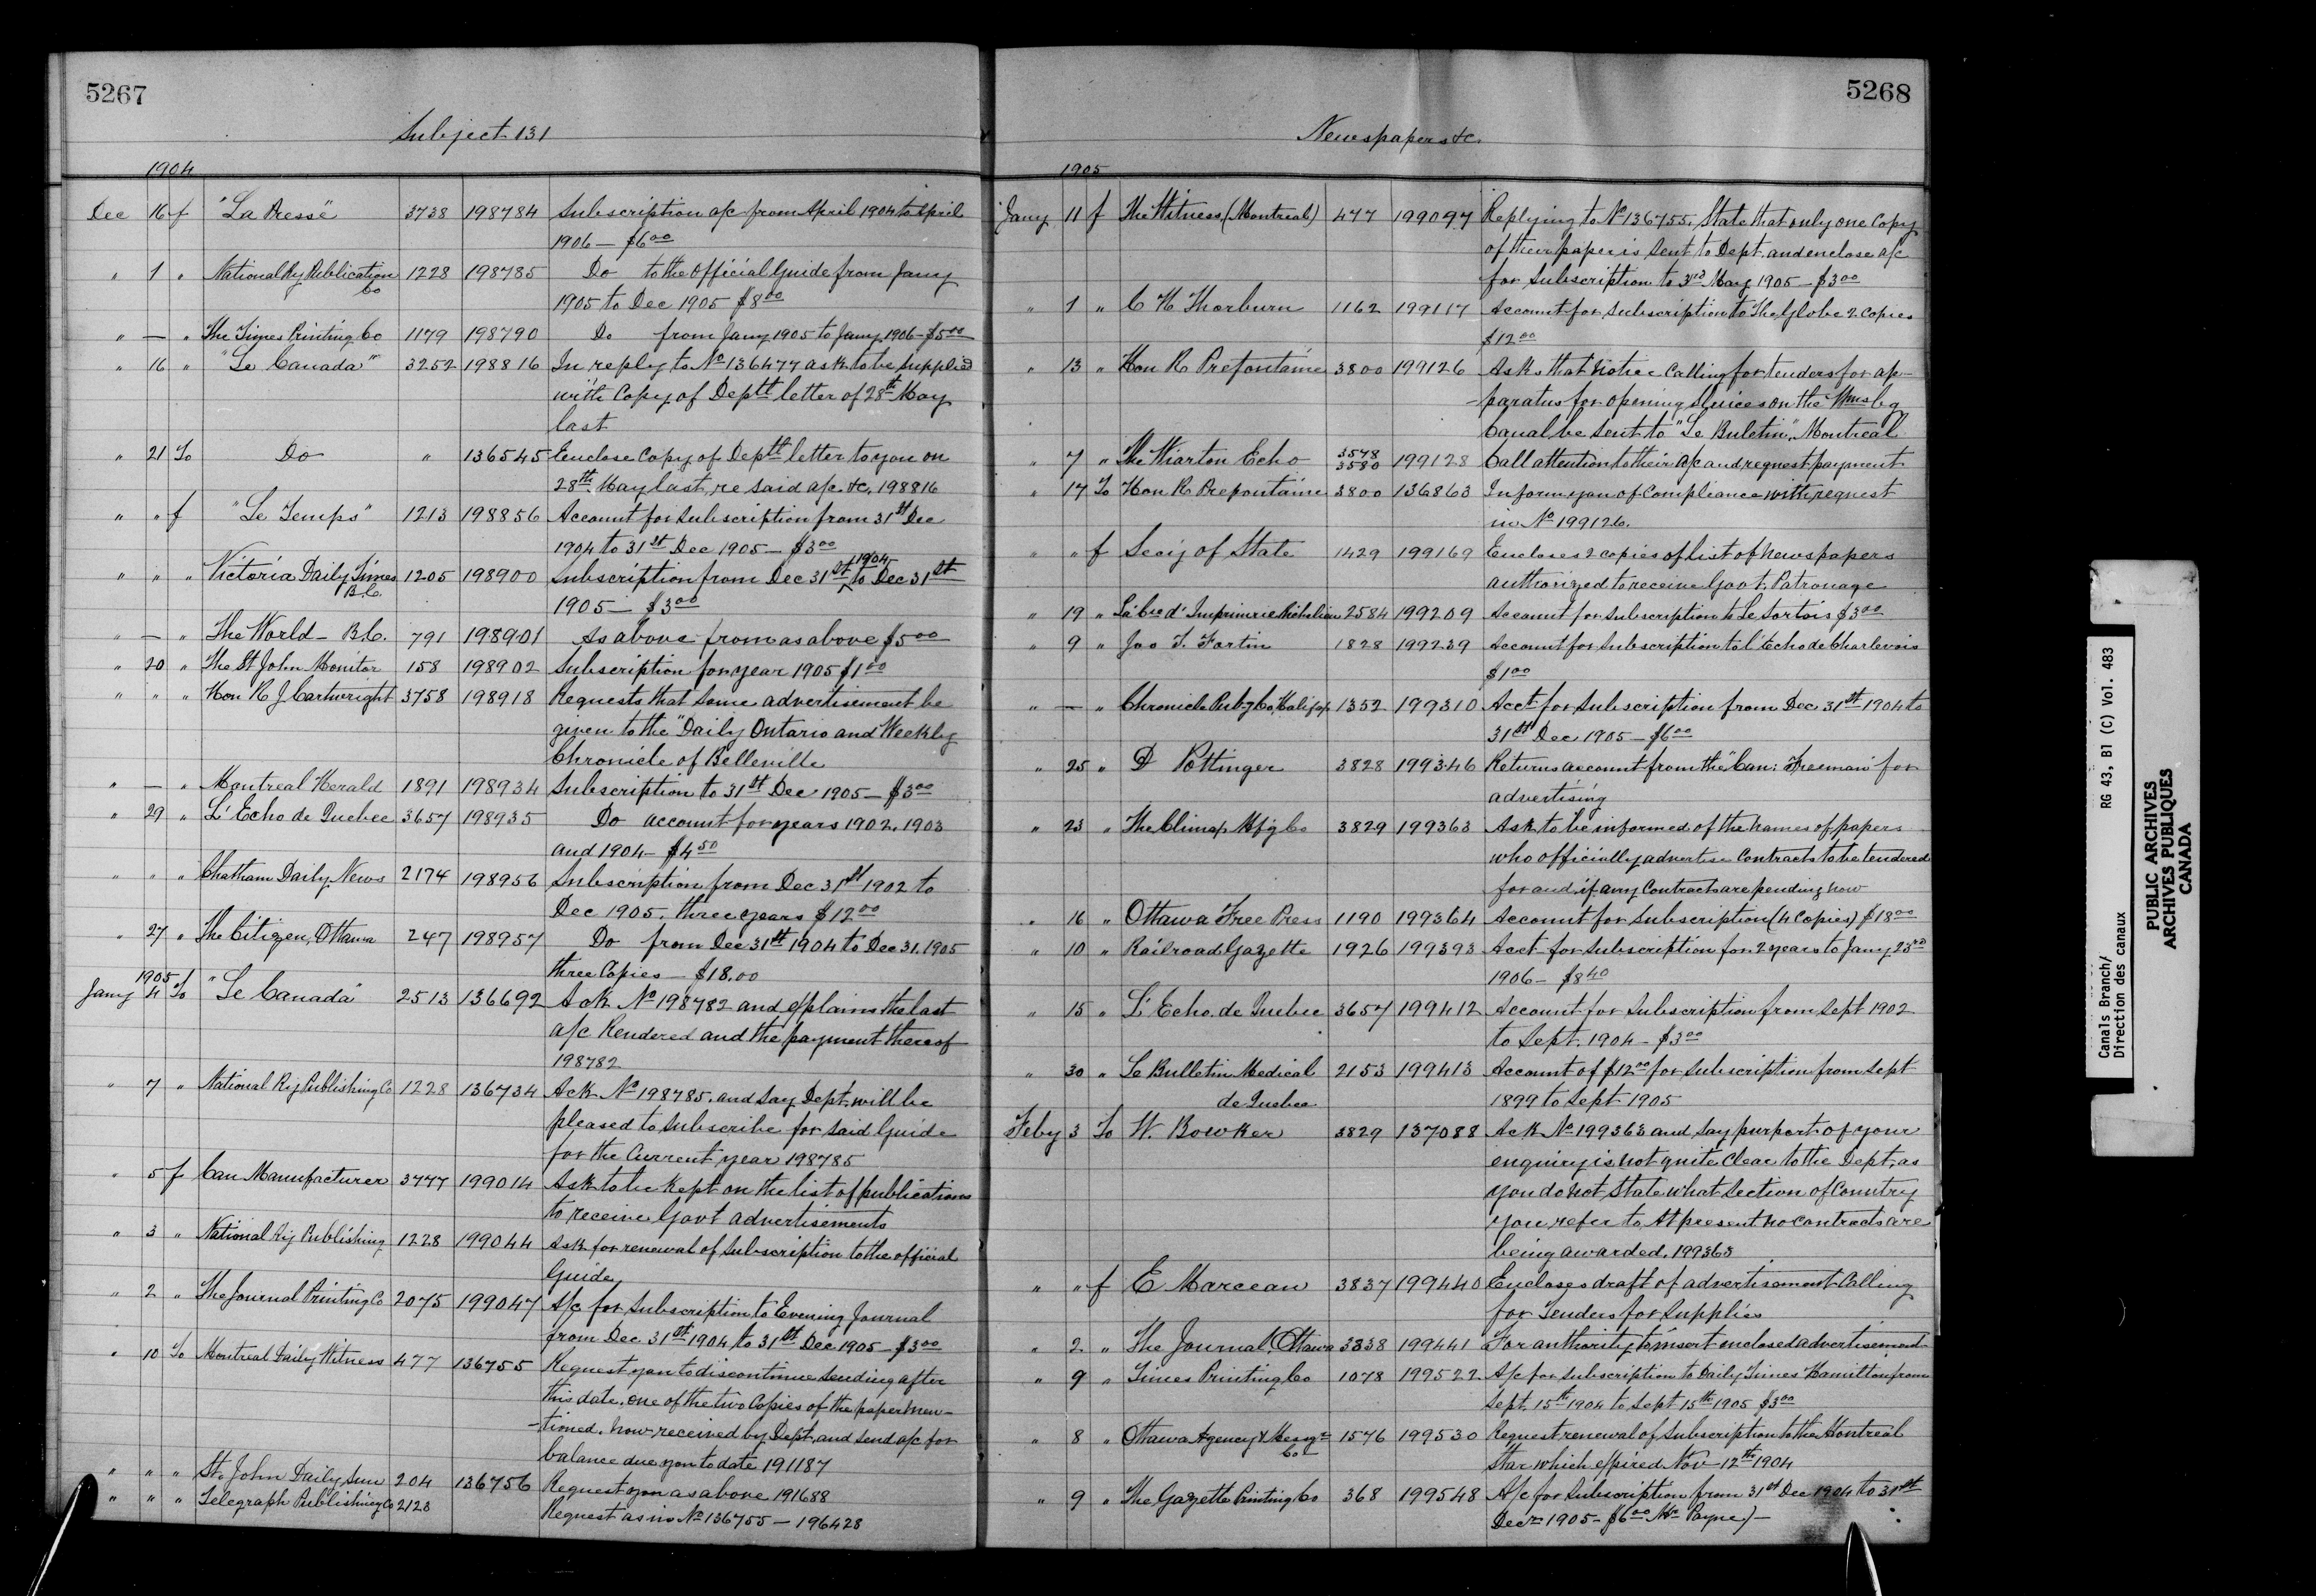 5267
Subject 131
1904
Dec 16 f "La Presse" 3738 198784 Subscription a/c from April 1904 to April
1906 — $6.00
" 1 " National Ry Publication Co 1228 198785 Do to the Official Guide from Jany
1905 to Dec 1905 $8.00
" — " The Times Printing Co 1179 198790 Do from Jany 1905 to Jany 1906 - $5.00
" 16 " "Le Canada" 3252 198816 In reply to No 136477 ask to be supplied
with Copy of Deptl letter of 28th May
last
" 21 To Do " 136545 Enclose Copy of Deptl letter to you on
28th May last, re said a/c &c, 198816
" " f "Le Temps" 1213 198856 Account for Subscription from 31st Dec
1904 to 31st Dec 1905 — $3.00
" " " Victoria Daily Times B.C. 1205 198900 Subscription from Dec 31st 1904 to Dec 31st
1905 — $3.00
" — " The World - B.C. 791 198901 As above from as above $5.00
" 20 " The St John Monitor 158 198902 Subscription for year 1905 $1.00
" " " Hon R J Cartwright 3758 198918 Requests that some advertisement be
given to the "Daily Ontario and Weekly
Chronicle of Belleville
" — " Montreal Herald 1891 198934 Subscription to 31st Dec 1905 — $3.00
" 29 " L'Echo de Quebec 3657 198935 Do account for years 1902, 1903
and 1904 — $4.50
" " " Chatham Daily News 2174 198956 Subscription from Dec 31st 1902 to
Dec 1905. three years $12.00
" 27 " The Citizen, Ottawa 247 198957 Do from Dec 31st 1904 to Dec 31. 1905
three Copies — $18.00
1905
Jany 4 To "Le Canada" 2513 136692 Ack No 198782 and explains the last
a/c Rendered and the payment thereof
198782
" 7 " National Ry Publishing Co 1228 136734 Ack No 198785, and say Dept. will be
pleased to subscribe for said Guide
for the Current year 198785
" 5 f Can Manufacturer 3777 199014 Ask to be Kept on the list of publications
to receive Govt advertisements
" 3 " National Ry Publishing 1228 199044 Ask for renewal of Subscription to the official
Guide
" 2 " The Journal Printing Co 2075 199047 A/c for Subscription to Evening Journal
from Dec 31st 1904 to 31st Dec 1905 — $3.00
" 10 To Montreal Daily Witness 477 136755 Request you to discontinue sending after
this date, one of the two Copies of the paper men-
-tioned, now received by Dept, and send a/c for
balance due you to date 191187
" " " St. John Daily Sun 204 136756 Request you as above 191688
" " " Telegraph Publishing Co 2123 Request as in No 136755 — 196428
5268
Newspapers &c.
1905
Jany 11 f The Witness (Montreal) 477 199097 Replying to No 136755. State that only one Copy
of their paper is sent to Dept. and enclose a/c
for Subscription to 3rd May 1905 — $3.00
" 1 " C H Thorburn 1162 199117 Account for Subscription to The Globe 2 Copies
$12.00
" 13 " Hon R Prefontaine 3800 199126 Asks that notice Calling for tenders for ap-
-paratus for opening sluices on the Wmsbg
Canal be sent to "Le Buletin", Montreal
" 7 " The Wiarton Echo 3578 3580 199128 Call attention to their a/c and request payment
" 17 To Hon R Prefontaine 3800 136863 Inform you of Compliance with request
in No 199126.
" " f Secy of State 1429 199169 Encloses 2 copies of list of newspapers
authorized to receive Govt. Patronage
" 19 " La Cie d'Imprimrie Richelieu 2584 199209 Account for Subscription to Le Sortois $3.00
" 9 " Jno T. Fortin 1828 199239 Account for Subscription to L'Echo de Charlevoix
$1.00
" — " Chronicle Pubg Co, Halifax 1352 199310 Acct for Subscription from Dec 31st 1904 to
31st Dec 1905 — $6.00
" 25 " D Pottinger 3828 199346 Returns account from the "Can: Freeman" for
advertising
" 23 " The Climax Mfg Co 3829 199363 Ask to be informed of the names of papers
who officially advertise Contracts to be tendered
for and if any Contracts are pending now
" 16 " Ottawa Free Press 1190 199364 Account for Subscription (4 Copies) $18.00
" 10 " Railroad Gazette 1926 199393 Acct for Subscription for 2 years to Jany 23rd
1906 — $8.40
" 15 " L'Echo de Quebec 3657 199412 Account for Subscription from Sept 1902
to Sept. 1904 — $3.00
" 30 " Le Bulletin Medical 2153 199413 Account of $12.00 for Subscription from Sept
de Quebec 1899 to Sept 1905
Feby 3 To W. Bowker 3829 137088 Ack No 199363 and say purport of your
enquiry is not quite Clear to the Dept, as
you do not State what Section of Country
you refer to, At present no contracts are
being awarded. 199363
" " f E Marceau 3837 199440 Encloses draft of advertisement Calling
for Tenders for Supplies
" 2 " The Journal, Ottawa 3838 199441 For authority to insert enclosed advertisement
" 9 " Times Printing Co 1078 199522 A/c for Subscription to Daily Times Hamilton from
Sept. 15th 1904 to Sept 15th 1905 $3.00
" 8 " Ottawa Agency & Messgr Co 1576 199530 Request renewal of Subscription to the Montreal
Star which expired Nov 12th 1904
" 9 " The Gazette Printing Co 368 199548 A/c for Subscription from 31st Dec 1904 to 31st
Decr 1905 - $6.00 Mr Payne) —
Canals Branch/
Direction des canaux
RG 43, B1 (C) Vol. 483
PUBLIC ARCHIVES
ARCHIVES PUBLIQUES
CANADA